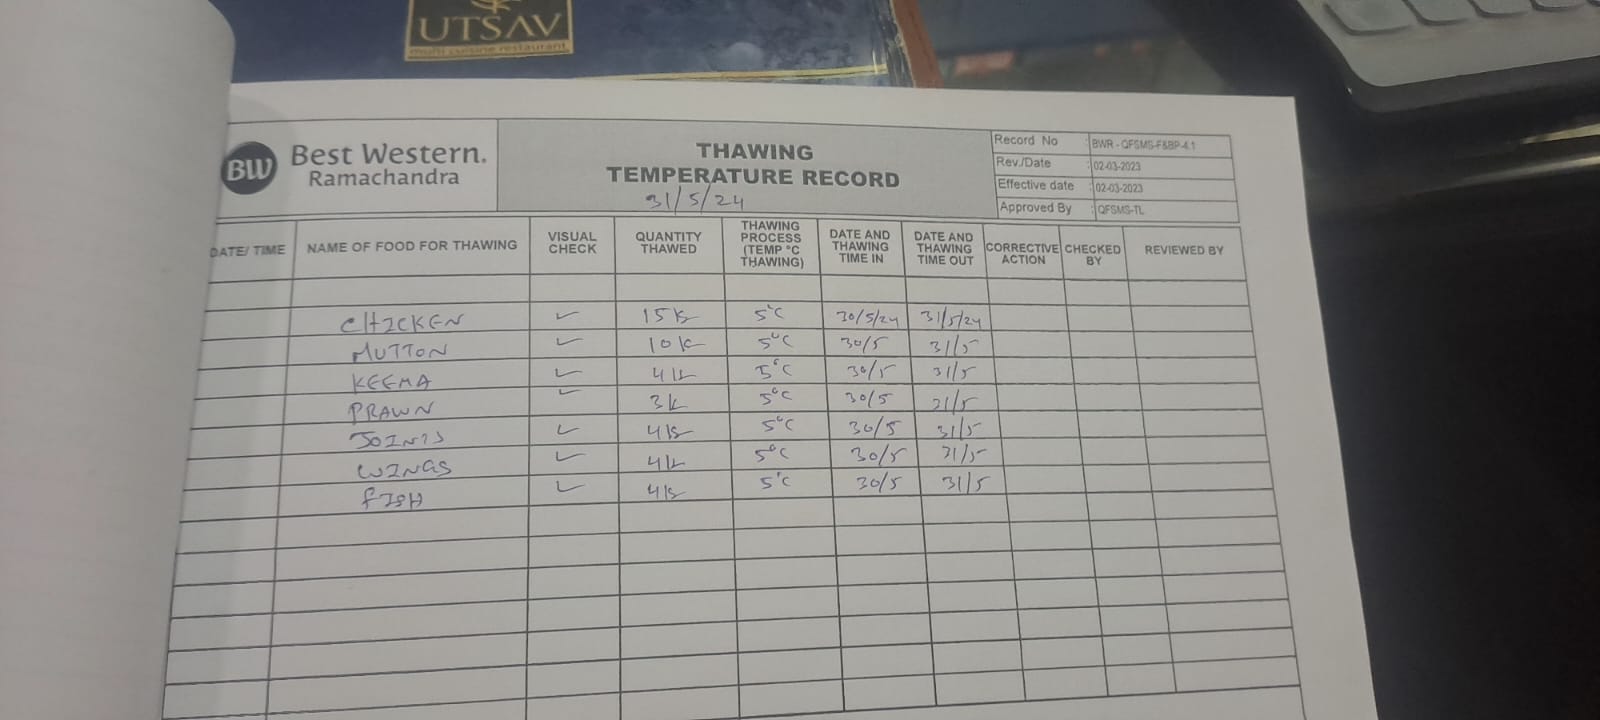 UTSAV
multi cuisine restaurant
BW Best Western.
Ramachandra
THAWING
TEMPERATURE RECORD
31/5/24
Record No : BWR - QFSMS-F&BP-4.1
Rev./Date : 02-03-2023
Effective date : 02-03-2023
Approved By : QFSMS-TL
DATE/ TIME NAME OF FOOD FOR THAWING VISUAL CHECK QUANTITY THAWED THAWING PROCESS (TEMP °C THAWING) DATE AND THAWING TIME IN DATE AND THAWING TIME OUT CORRECTIVE ACTION CHECKED BY REVIEWED BY
CHICKEN ✓ 15k 5°C 30/5/24 31/5/24
MUTTON ✓ 10k 5°C 30/5 31/5
KEEMA ✓ 4k 5°C 30/5 31/5
PRAWN ✓ 3k 5°C 30/5 31/5
JOINTS ✓ 4k 5°C 30/5 31/5
WINGS ✓ 4k 5°C 30/5 31/5
FISH ✓ 4k 5°C 30/5 31/5